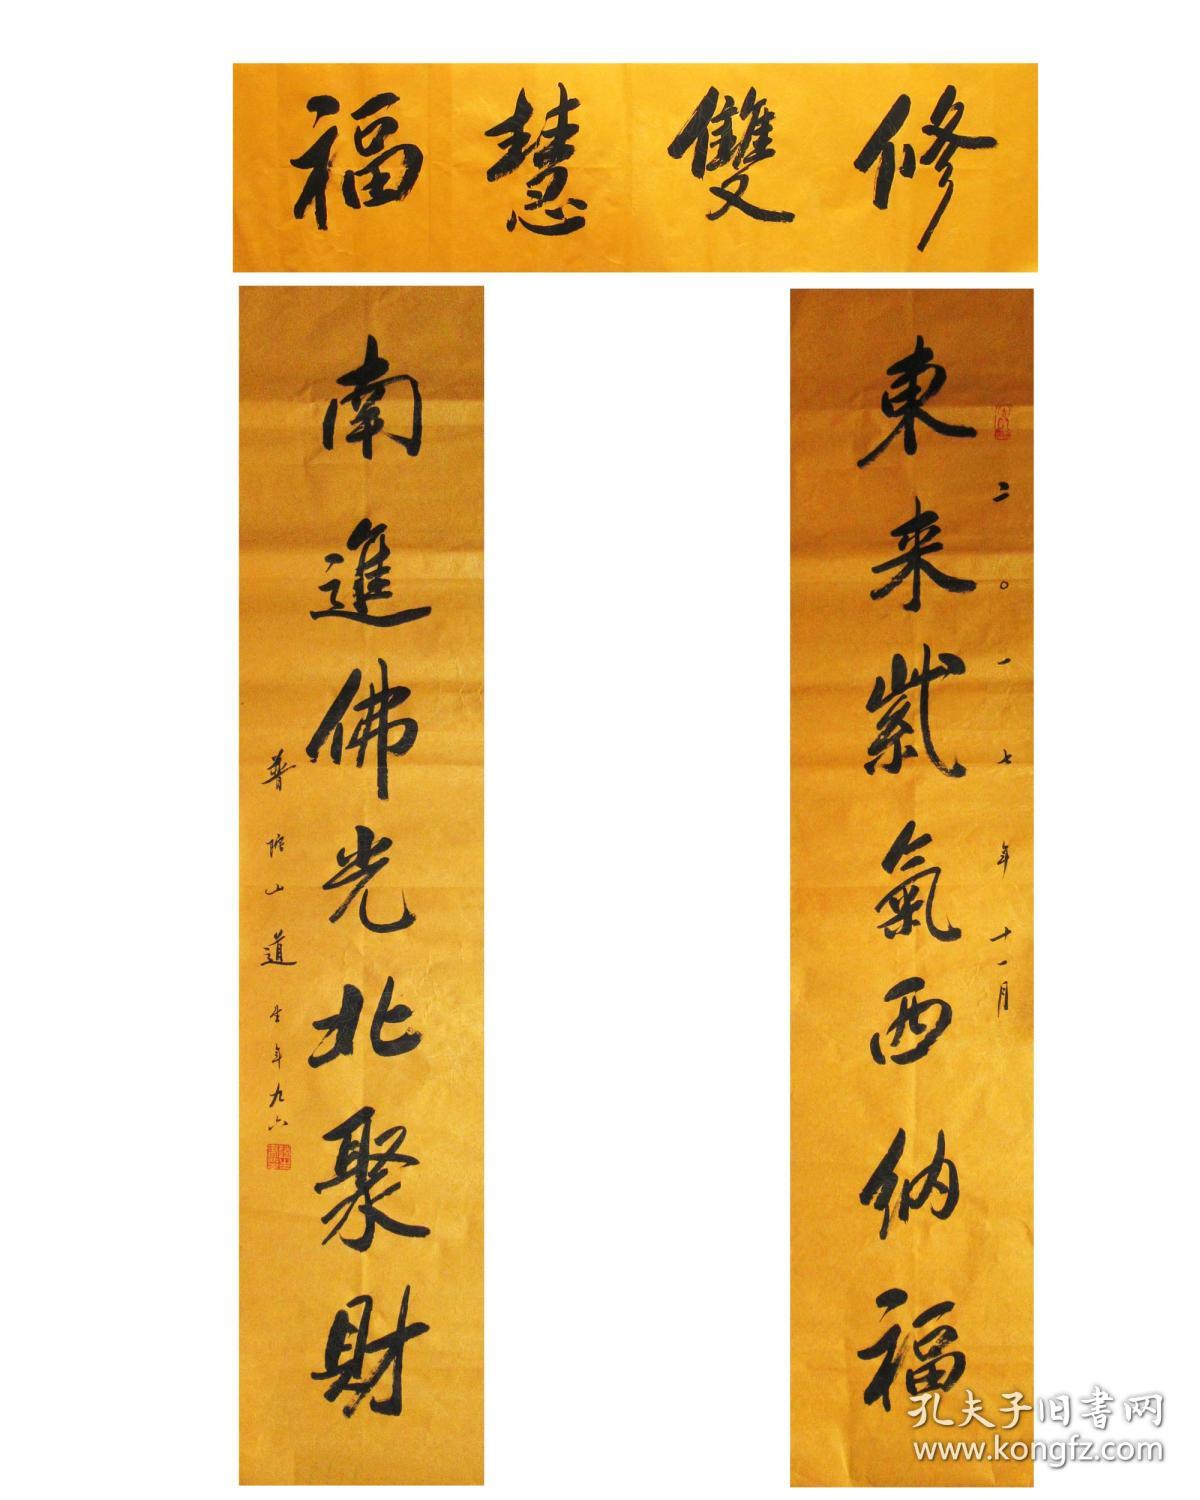 福慧雙修
東来紫氣西纳福
二〇一七年十一月
南進佛光北聚財
普陀山道生年九六
孔夫子旧書网
www.kongfz.com